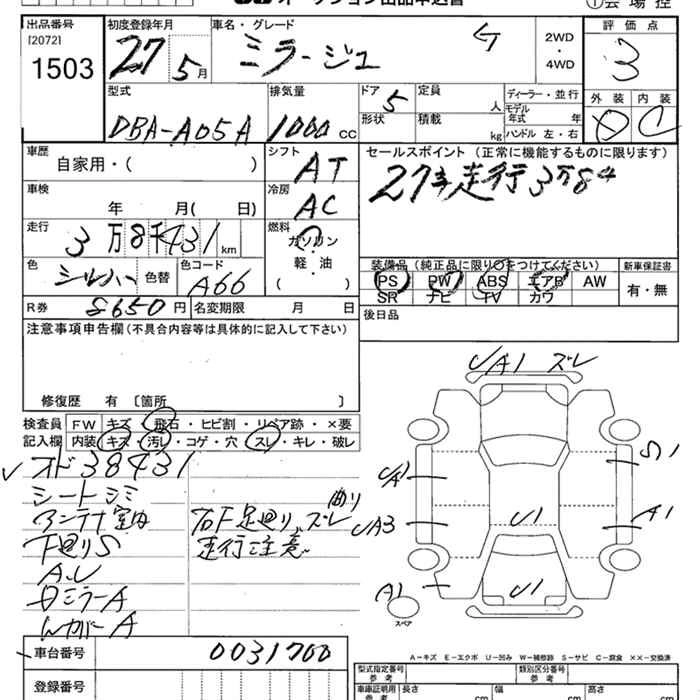 オークション出品申込書
①会場控
出品番号 初度登録年月 車名・グレード 2WD・4WD 評価点
[2072] 1503 27 5月 ミラージュ G 3
型式 排気量 ドア 定員 人 ディーラー・並行 外装 内装
DBA-A05A 1000cc 5 形状 積載 kg モデル年式 年 ハンドル 左・右 D C
車歴 シフト セールスポイント (正常に機能するものに限ります)
自家用・( ) AT 27年走行3万8千
車検 冷房
年 月( 日) AC
走行 燃料
3万8千431km ガソリン
軽・油
( )
色 色替 色コード 装備品 (純正品に限り○をつけてください) 新車保証書
シルバー A66 PS PW ABS エアB AW 有・無
SR ナビ TV カワ
R券 8650円 名変期限 月 日 後日品
注意事項申告欄 (不具合内容等は具体的に記入して下さい)
修復歴 有 〔箇所 〕
検査員 FW キズ・飛石・ヒビ割・リペア跡・×要
記入欄 内装 キズ・汚レ・コゲ・穴・スレ・キレ・破レ
オド38431
シートシミ
アンテナ室内
下廻りS
A.U
右F足廻り曲りズレ
走行注意
ミラーA
カバーA
UA1 ズレ
A1
UA3
A1
U1
U1
A1
スペア
車台番号 0031700
登録番号
A-キズ E-エクボ U-凹み W-補修跡 S-サビ C-腐食 XX-交換済
型式指定番号 参考 類別区分番号 参考
車庫証明用 参考 長さ cm 幅 cm 高さ cm